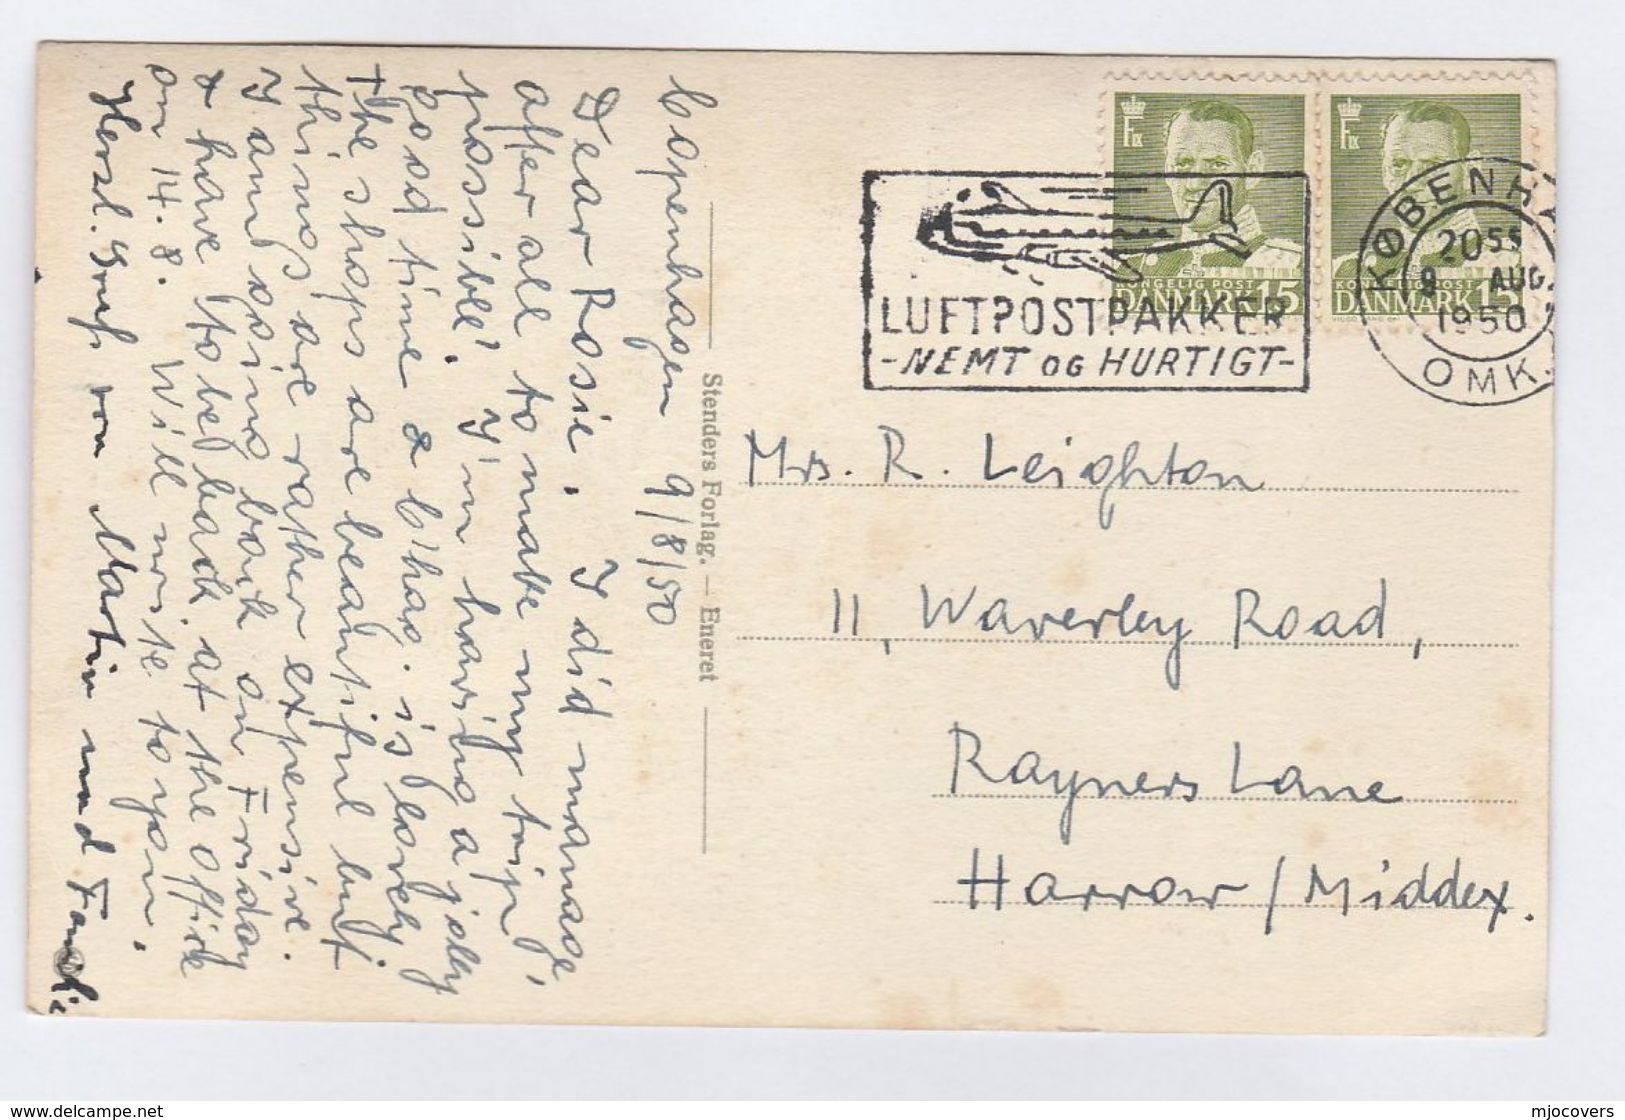 Copenhagen 9/8/50
Dear Rosie. I did manage
after all to make my trip,
possible'. I'm having a jolly
good time & C'hag. is lovely
the shops are beautiful but
things are rather expensive.
I am going back on Friday
& have to be back at the office
on 14.8. Will write to you.
Herzl. Gruß von Martin und Familie
Stenders Forlag. — Eneret
F IX
KONGELIG POST
DANMARK 15
F IX
KONGELIG POST
DANMARK 15
LUFTPOSTPAKKER
-NEMT OG HURTIGT-
KØBENHA
2055
9 AUG.
1950
OMK.
Mrs. R. Leighton
11, Waverley Road,
Rayners Lane
Harrow / Middex.
delcampe.net
mjocovers